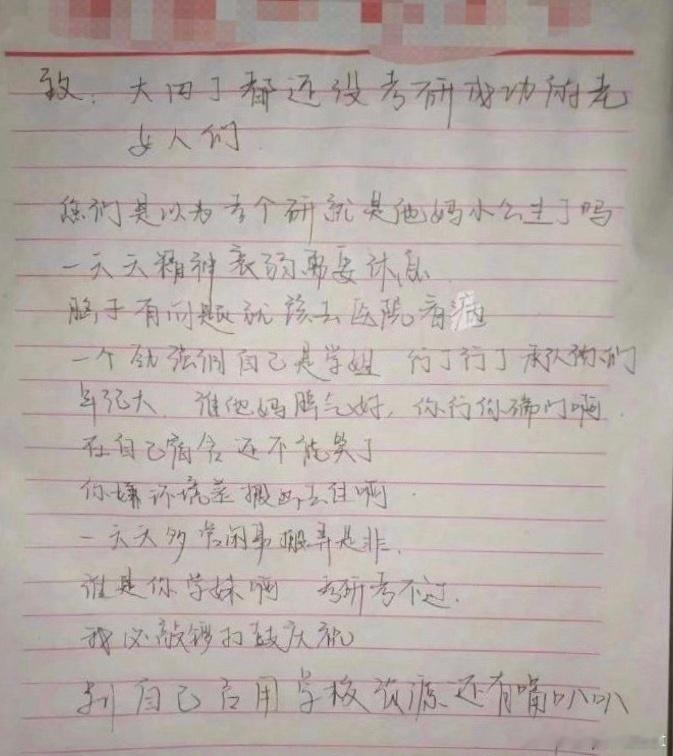 致：大四了都还没考研成功的老
女人们
您们是以为考个研就是他妈小公主了吗
一天天精神衰弱需要休息
脑子有问题就该去医院看病
一个劲强调自己是学姐 行了行了承认你们
年纪大 谁他妈脾气好，你行你确门啊
在自己宿舍还不能笑了
你嫌环境差搬出去住啊
一天天多管闲事搬弄是非
谁是你学妹啊 考研考不过
我必敲锣打鼓庆祝
别自己占用学校资源还有嘴叭叭